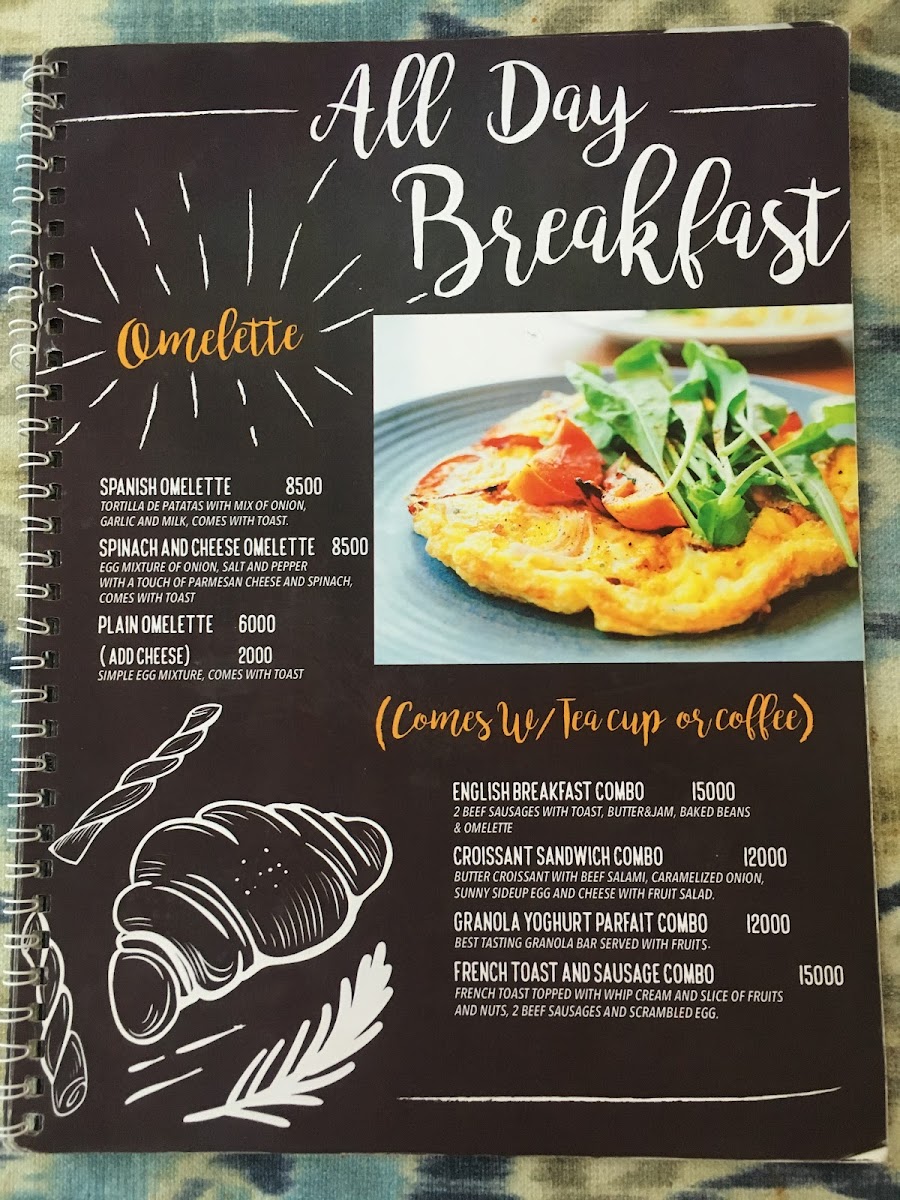 All Day
Breakfast
Omelette
SPANISH OMELETTE 8500
TORTILLA DE PATATAS WITH MIX OF ONION,
GARLIC AND MILK, COMES WITH TOAST.
SPINACH AND CHEESE OMELETTE 8500
EGG MIXTURE OF ONION, SALT AND PEPPER
WITH A TOUCH OF PARMESAN CHEESE AND SPINACH,
COMES WITH TOAST
PLAIN OMELETTE 6000
(ADD CHEESE) 2000
SIMPLE EGG MIXTURE, COMES WITH TOAST
(Comes W/Tea cup or coffee)
ENGLISH BREAKFAST COMBO 15000
2 BEEF SAUSAGES WITH TOAST, BUTTER&JAM, BAKED BEANS
& OMELETTE
CROISSANT SANDWICH COMBO 12000
BUTTER CROISSANT WITH BEEF SALAMI, CARAMELIZED ONION,
SUNNY SIDEUP EGG AND CHEESE WITH FRUIT SALAD.
GRANOLA YOGHURT PARFAIT COMBO 12000
BEST TASTING GRANOLA BAR SERVED WITH FRUITS.
FRENCH TOAST AND SAUSAGE COMBO 15000
FRENCH TOAST TOPPED WITH WHIP CREAM AND SLICE OF FRUITS
AND NUTS, 2 BEEF SAUSAGES AND SCRAMBLED EGG.